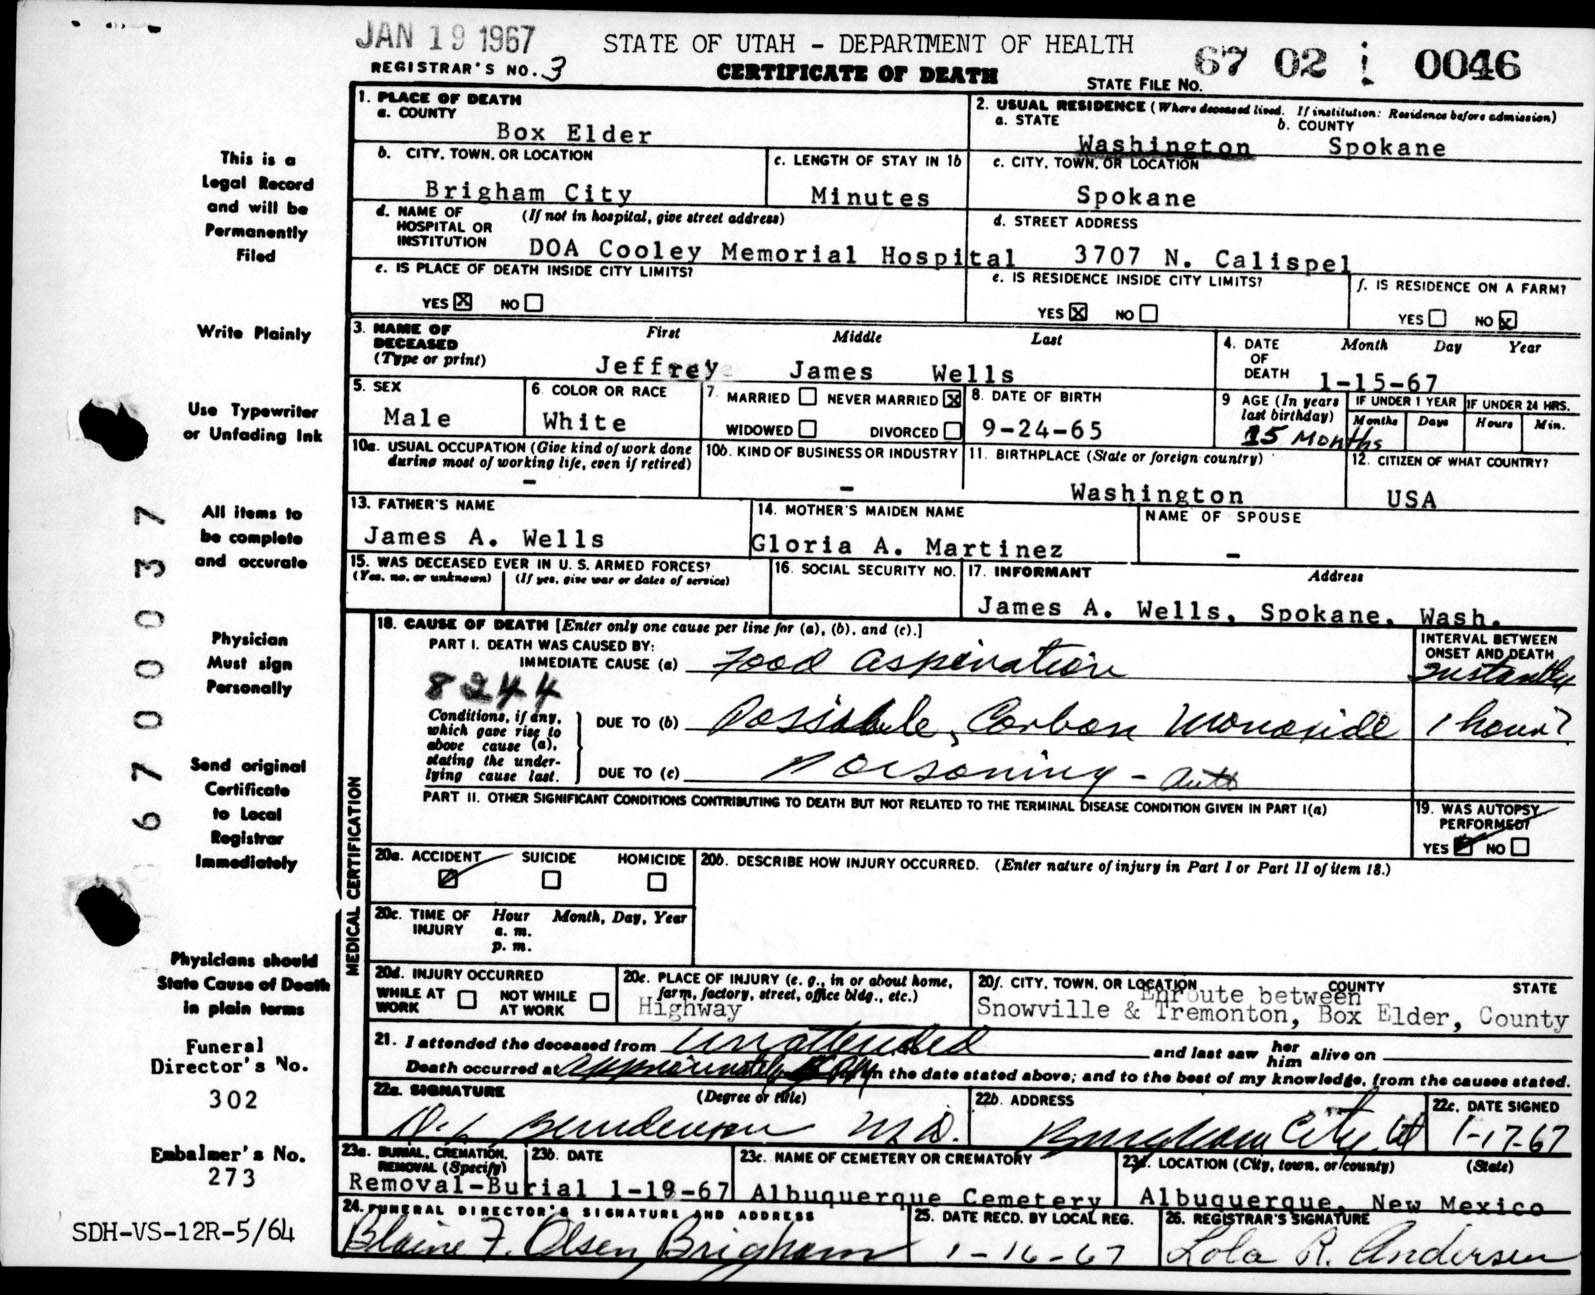 JAN 19 1967
STATE OF UTAH - DEPARTMENT OF HEALTH
67 02 0046
REGISTRAR'S NO. 3
CERTIFICATE OF DEATH
STATE FILE NO.
This is a
Legal Record
and will be
Permanently
Filed
Write Plainly
Use Typewriter
or Unfading Ink
All items to
be complete
and accurate
Physician
Must sign
Personally
Send original
Certificate
to Local
Registrar
Immediately
Physicians should
State Cause of Death
in plain terms
Funeral
Director's No.
302
Embalmer's No.
273
SDH-VS-12R-5/64
67000037
1. PLACE OF DEATH
a. COUNTY
Box Elder
2. USUAL RESIDENCE (Where deceased lived. If institution: Residence before admission)
a. STATE b. COUNTY
Washington Spokane
b. CITY, TOWN, OR LOCATION
Brigham City
c. LENGTH OF STAY IN 1b
Minutes
c. CITY, TOWN, OR LOCATION
Spokane
d. NAME OF HOSPITAL OR INSTITUTION (If not in hospital, give street address)
DOA Cooley Memorial Hospital
d. STREET ADDRESS
3707 N. Calispel
e. IS PLACE OF DEATH INSIDE CITY LIMITS?
YES ☒ NO ☐
e. IS RESIDENCE INSIDE CITY LIMITS?
YES ☒ NO ☐
f. IS RESIDENCE ON A FARM?
YES ☐ NO ☒
3. NAME OF DECEASED (Type or print)
First Middle Last
Jeffrey James Wells
4. DATE OF DEATH
Month Day Year
1-15-67
5. SEX
Male
6. COLOR OR RACE
White
7. MARRIED ☐ NEVER MARRIED ☒
WIDOWED ☐ DIVORCED ☐
8. DATE OF BIRTH
9-24-65
9 AGE (In years last birthday)
15 Months
IF UNDER 1 YEAR
Months Days
IF UNDER 24 HRS.
Hours Min.
10a. USUAL OCCUPATION (Give kind of work done during most of working life, even if retired)
-
10b. KIND OF BUSINESS OR INDUSTRY
-
11. BIRTHPLACE (State or foreign country)
Washington
12. CITIZEN OF WHAT COUNTRY?
USA
13. FATHER'S NAME
James A. Wells
14. MOTHER'S MAIDEN NAME
Gloria A. Martinez
NAME OF SPOUSE
-
15. WAS DECEASED EVER IN U. S. ARMED FORCES?
(Yes, no, or unknown) (If yes, give war or dates of service)
16. SOCIAL SECURITY NO.
17. INFORMANT Address
James A. Wells, Spokane, Wash.
MEDICAL CERTIFICATION
18. CAUSE OF DEATH [Enter only one cause per line for (a), (b), and (c).]
INTERVAL BETWEEN ONSET AND DEATH
PART I. DEATH WAS CAUSED BY:
IMMEDIATE CAUSE (a) Food aspiration Instantly
8244
Conditions, if any, which gave rise to above cause (a), stating the underlying cause last.
DUE TO (b) Possible, Carbon Monoxide 1 hour?
DUE TO (c) Poisoning - auto
PART II. OTHER SIGNIFICANT CONDITIONS CONTRIBUTING TO DEATH BUT NOT RELATED TO THE TERMINAL DISEASE CONDITION GIVEN IN PART I(a)
19. WAS AUTOPSY PERFORMED?
YES ☒ NO ☐
20a. ACCIDENT SUICIDE HOMICIDE
☒ ☐ ☐
20b. DESCRIBE HOW INJURY OCCURRED. (Enter nature of injury in Part I or Part II of item 18.)
20c. TIME OF INJURY
Hour Month, Day, Year
a. m.
p. m.
20d. INJURY OCCURRED
WHILE AT WORK ☐ NOT WHILE AT WORK ☐
20e. PLACE OF INJURY (e. g., in or about home, farm, factory, street, office bldg., etc.)
Highway
20f. CITY, TOWN, OR LOCATION COUNTY STATE
Enroute between
Snowville & Tremonton, Box Elder, County
21. I attended the deceased from unattended and last saw her him alive on
Death occurred at approximately on the date stated above; and to the best of my knowledge, from the causes stated.
22a. SIGNATURE (Degree or title)
M.D.
22b. ADDRESS
Brigham City, Ut
22c. DATE SIGNED
1-17-67
23a. BURIAL, CREMATION, REMOVAL (Specify)
Removal-Burial
23b. DATE
1-19-67
23c. NAME OF CEMETERY OR CREMATORY
Albuquerque Cemetery
23d. LOCATION (City, town, or county) (State)
Albuquerque, New Mexico
24. FUNERAL DIRECTOR'S SIGNATURE AND ADDRESS
Blaine F. Olsen, Brigham
25. DATE RECD. BY LOCAL REG.
1-16-67
26. REGISTRAR'S SIGNATURE
Lola R. Andersen